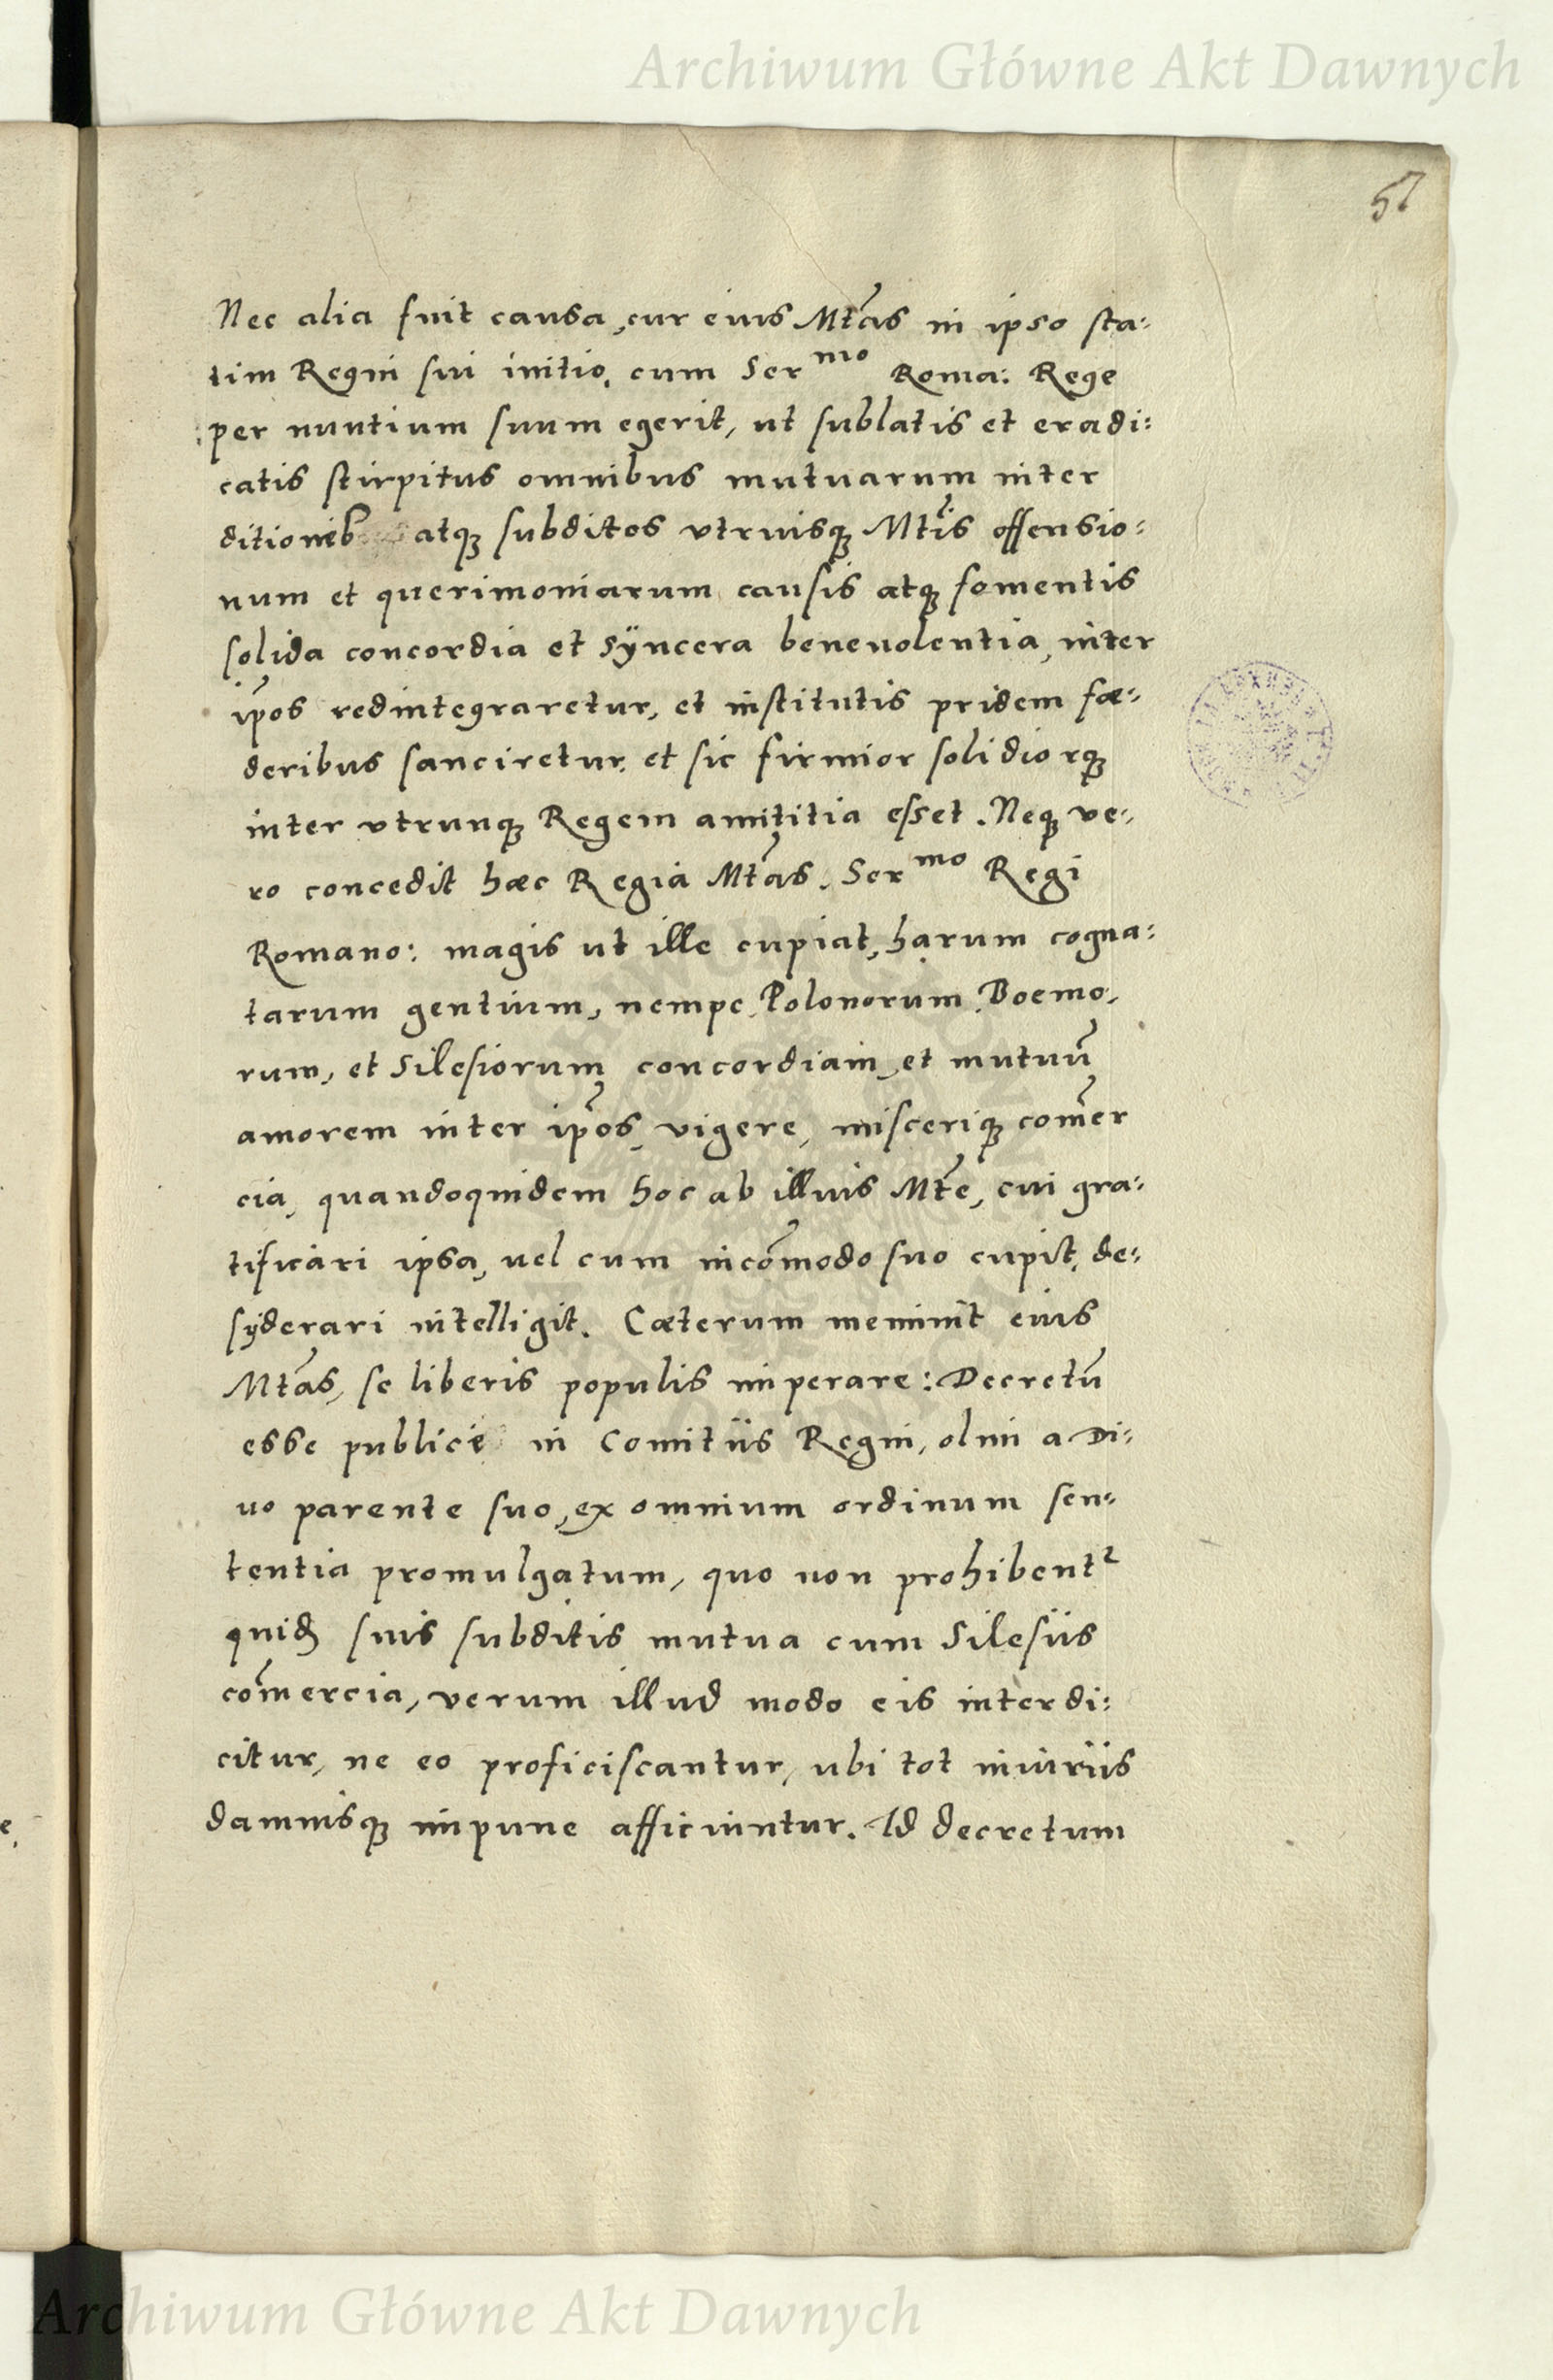 Archiwum Główne Akt Dawnych
57
Nec alia fuit causa, cur eius Mtãs in ipso sta:
tim Regni sui initio, cum Ser mo Roma: Rege
per nuntium suum egerit, ut sublatis et eradi:
catis stirpitus omnibus mutuarum inter
ditionib atqꝫ subditos vtriusqꝫ Mtĩs offensio:
num et querimoniarum causis atqꝫ fomentis
solida concordia et sÿncera beneuolentia, inter
ip̃os redintegraretur, et institutis pridem fœ:
deribus sanciretur, et sic firmior solidiorqꝫ
inter vtrunqꝫ Regem amititia esset. Neqꝫ ve:
ro concedit hæc Regia Mtãs, Ser mo Regi
Romano: magis ut ille cupiat, harum cogna:
tarum gentium, nempe Polonorum, Boemo,
rum, et Silesiorum concordiam, et mutuũ
amorem inter ip̃os vigere, misceriqꝫ com̃er
cia, quandoquidem hoc ab illius Mtẽ, cui gra:
tificari ipsa, uel cum incõmodo suo cupit, de:
syderari intelligit. Cæterum meminit eius
Mtãs, se liberis populis imperare: Decretũ
esse publice in Comitiis Regni, olim a Di:
uo parente suo, ex omnium ordinum sen:
tentia promulgatum, quo non prohibent᷑
quid̃ suis subditis mutua cum Silesiis
com̃ercia, verum illud modo eis interdi:
citur, ne eo proficiscantur, ubi tot iniuriis
damnisqꝫ impune afficiuntur. Id decretum
Archiwum Główne Akt Dawnych